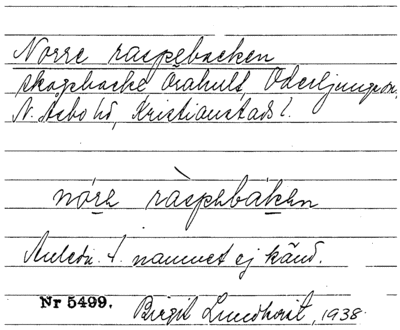 Norre raspebacken
skogsbacke Örahult, Oderljunga sn,
N. Åsbo hd, Kristianstads l.
nór̲e ràspebák̲en
Anledn. t. namnet ej känd.
Nr 5499. Birgit Lundhorst, 1938.